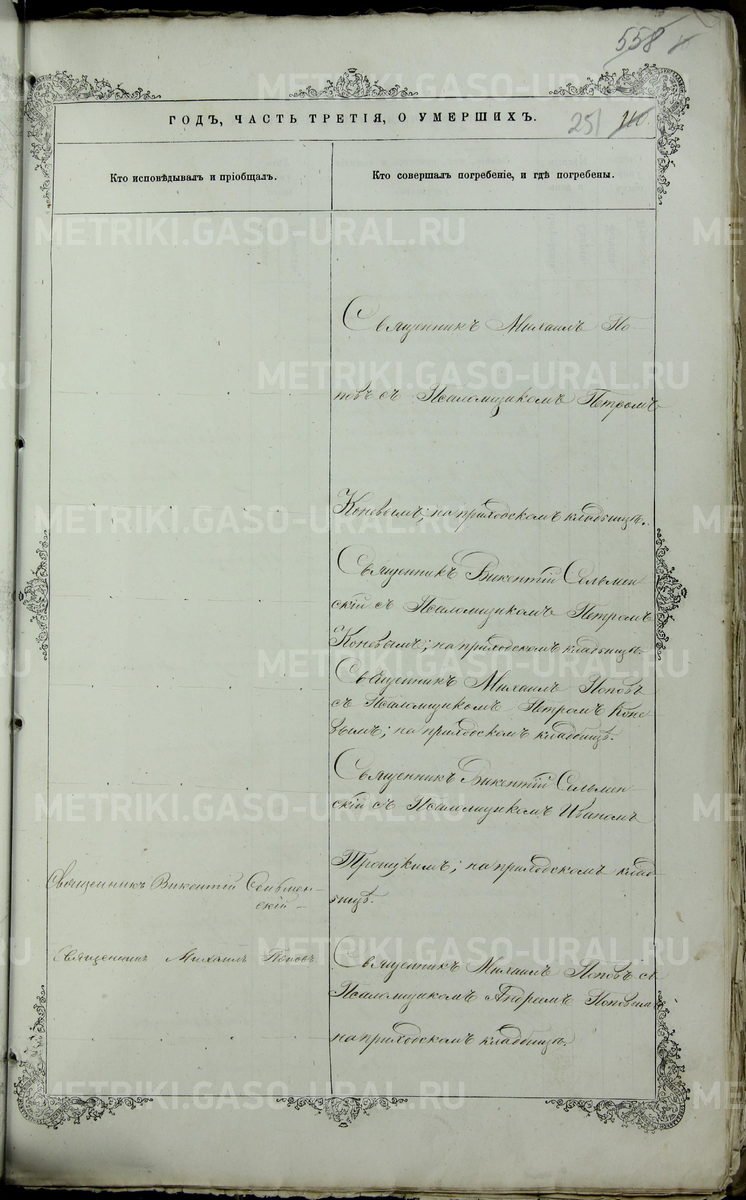 558
ГОДЪ, ЧАСТЬ ТРЕТІЯ, О УМЕРШИХЪ.
251
Кто исповѣдывалъ и пріобщалъ.
Кто совершалъ погребеніе, и гдѣ погребены.
Священникъ Михаилъ По-
повъ съ Псаломщикомъ Петромъ
Коневымъ; на приходскомъ кладбищѣ.
Священникъ Викентій Сельмен
скій съ Псаломщикомъ Петромъ
Коневымъ; на приходскомъ кладбищѣ
Священникъ Михаилъ Поповъ
съ Псаломщикомъ Петромъ Коне
вымъ; на приходскомъ кладбищѣ.
Священникъ Викентій Сельмен
скій съ Псаломщикомъ Иваномъ
Троицкимъ; на приходскомъ клад
бищѣ.
Священникъ Викентій Сельмен-
скій
Священникъ Михаилъ Поповъ
Священникъ Михаилъ Поповъ съ
Псаломщикомъ Андреемъ Поповымъ
на приходскомъ кладбищѣ.
METRIKI.GASO-URAL.RU